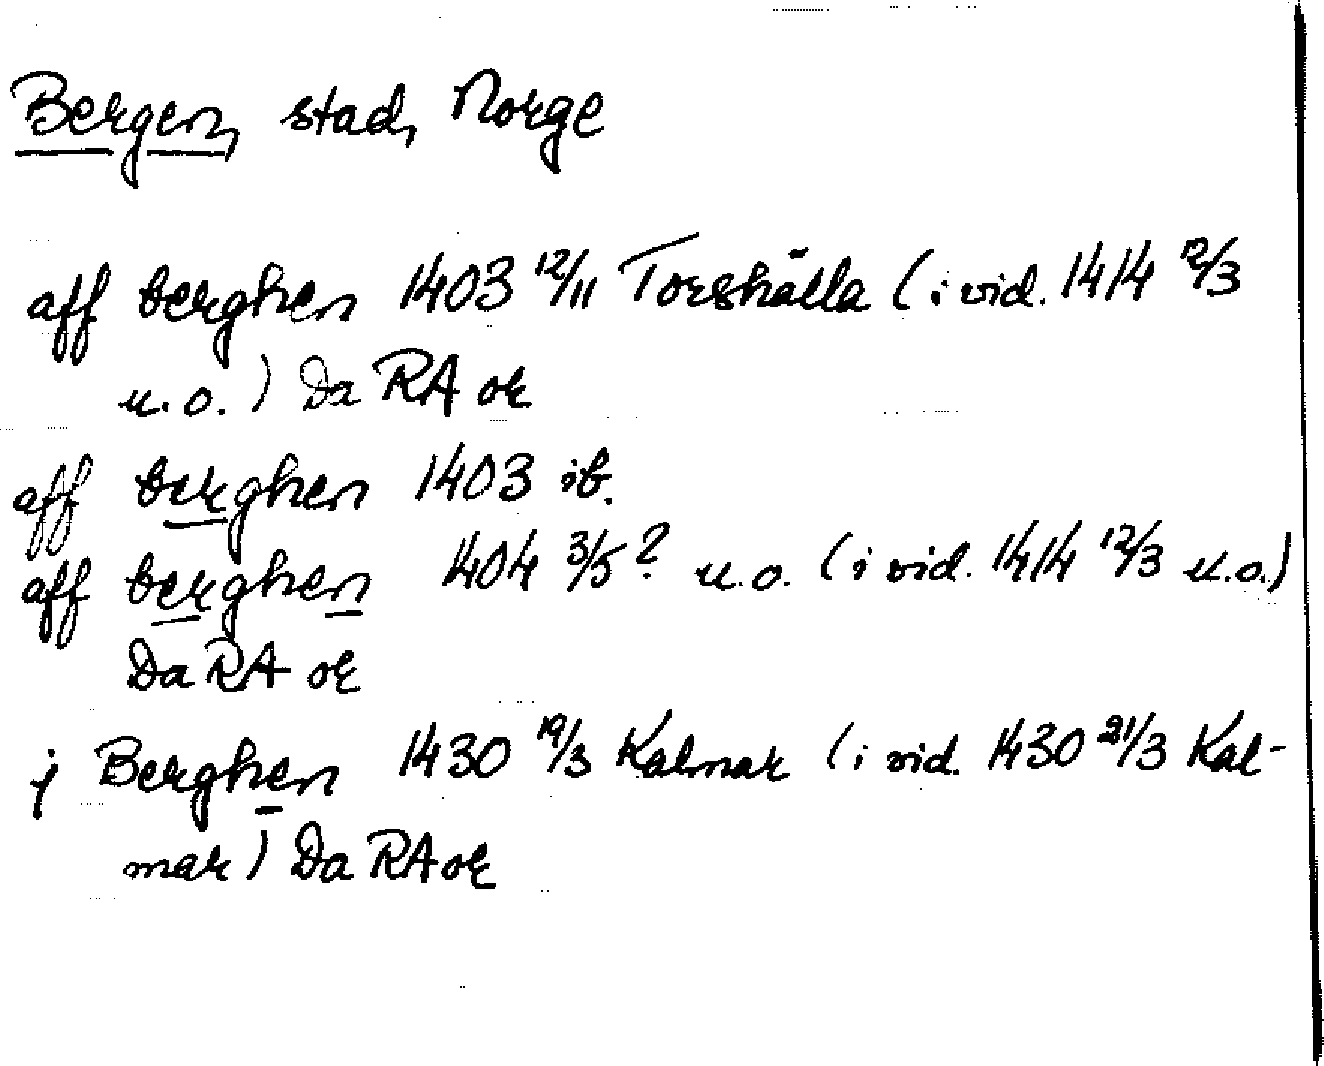 Bergen, stad, Norge
aff berghen 1403 12/11 Torshälla (i vid. 1414 12/3
u.o.) Da RA or
aff berghen 1403 ib.
aff berghen 1404 3/5? u.o. (i vid. 1414 12/3 u.o.)
Da RA or
j Berghen 1430 19/3 Kalmar (i vid. 1430 21/3 Kal-
mar) Da RA or